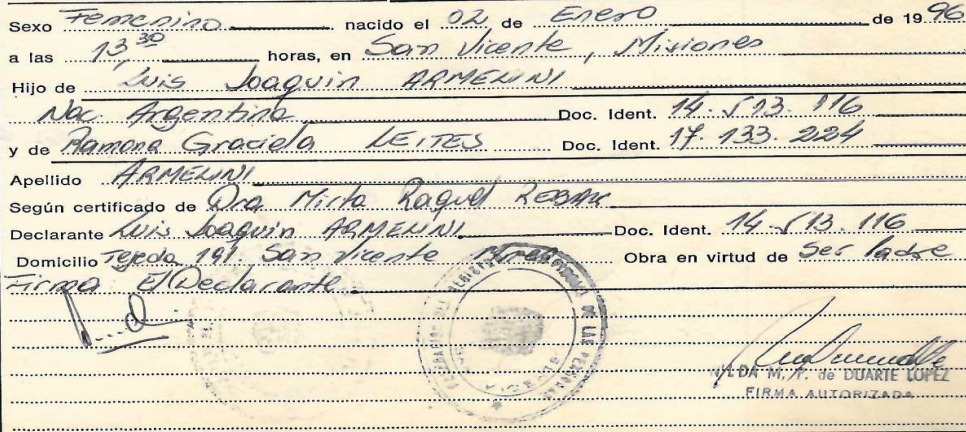 Sexo Femenino nacido el 02 de Enero de 1996
a las 13,30 horas, en San Vicente, Misiones
Hijo de Luis Joaquin ARMENINI
Nac. Argentina Doc. Ident. 14.513.116
y de Ramona Graciela LEITES Doc. Ident. 17.133.224
Apellido ARMENINI
Según certificado de Dra Mirta Raquel REBAK
Declarante Luis Joaquin ARMENINI Doc. Ident. 14.513.116
Domicilio Tejeda 191. San Vicente Mnes Obra en virtud de Ser Padre
Firma El Declarante
DE LAS PERSONAS
VICENTE
M. P. de DUARTE LOPEZ
FIRMA AUTORIZADA